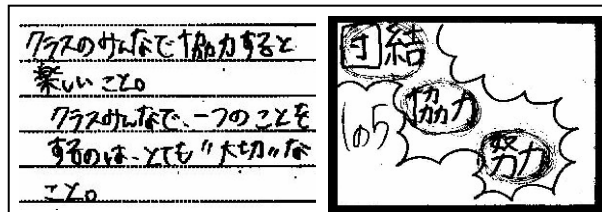 クラスのみんなで協力すると
楽しいこと。
クラスみんなで、一つのことを
するのは、とても"大切"な
こと。
団結
協力
1の5
努力